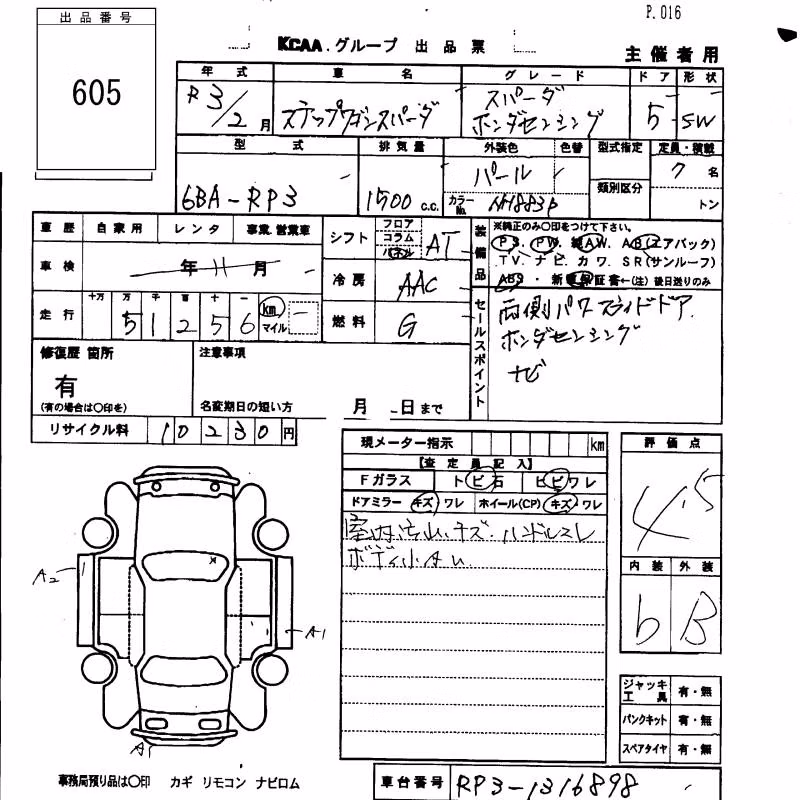 P.016
出品番号
605
KCAA.グループ 出品票
主催者用
年式 車名 グレード ドア 形状
R3/2月 ステップワゴンスパーダ スパーダ ホンダセンシング 5 SW
型式 排気量 外装色 色替 型式指定 定員・積載
6BA-RP3 1500 c.c. パール 7名
カラーNo. NH883P 類別区分 トン
車歴 自家用 レンタ 事業.営業車
シフト フロア コラム パネル AT
装備品 ※純正のみ〇印をつけて下さい。
PS. PW. AW. AB(エアバック)
TV. ナビ. カワ. SR(サンルーフ)
ABS・新 保証書←(注) 後日送りのみ
車検 年 11 月
冷房 AAC
走行 十万 万 千 百 十 一
51256 km マイル
燃料 G
セールスポイント
両側パワースライドドア.
ホンダセンシング
ナビ
修復歴 箇所
有
(有の場合は〇印を)
注意事項
名変期日の短い方 月 日まで
リサイクル料 10230円
現メーター指示 km
【査定員記入】
Fガラス トビ石 ヒビワレ
ドアミラー キズ ワレ ホイール(CP) キズ・ワレ
室内汚れ.キズ.ハンドルスレ
ボディ小キズ
評価点
4.5
内装 外装
b B
A2
A1
A1
ジャッキ工具 有・無
パンクキット 有・無
スペアタイヤ 有・無
事務局預り品は〇印 カギ リモコン ナビロム
車台番号 RP3-1316898